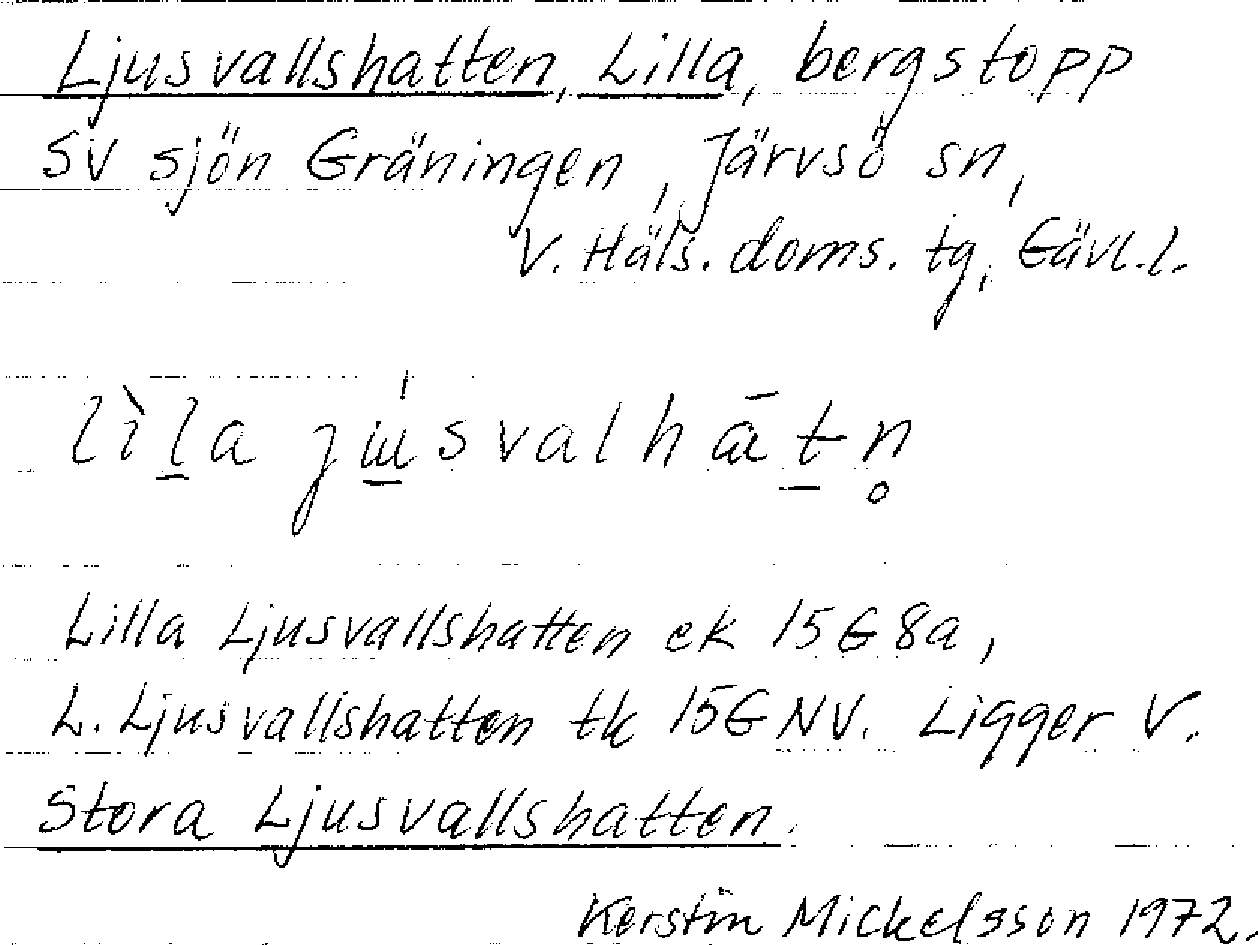 Ljusvallshatten, Lilla, bergstopp
SV sjön Gräningen, Järvsö sn,
V. Häls. doms. tg, Gävl.l.
lìl̠a jɯ̠́svalhā̀t̠n̥
Lilla Ljusvallshatten ek 15G8a,
L. Ljusvallshatten tk 15G NV. Ligger V.
Stora Ljusvallshatten.
Kerstin Mickelsson 1972.